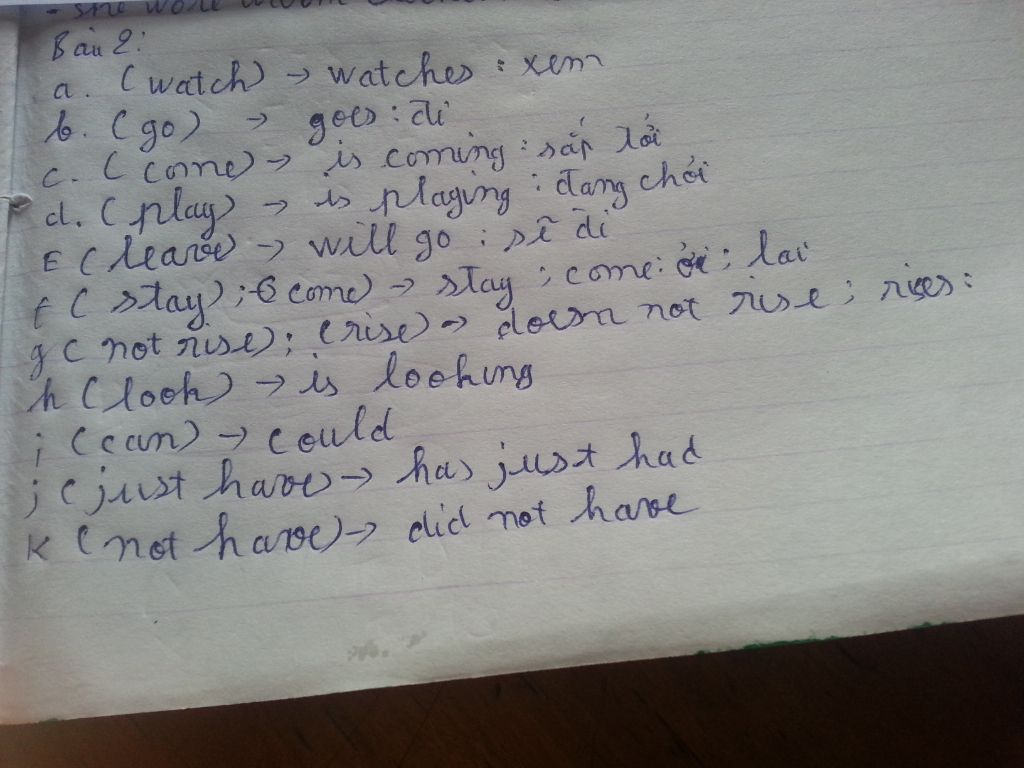 - she wore
Bài 2:
a. (watch) → watches : xem
b. (go) → goes : đi
c. (come) → is coming : sắp tới
d. (play) → is playing : đang chơi
E (leave) → will go : sẽ đi
f ( stay) ; (come) → stay ; come : ở ; lại
g ( not rise) ; (rise) → doesn not rise ; rises :
h (look) → is looking
i (can) → could
j ( just have) → has just had
K (not have) → did not have